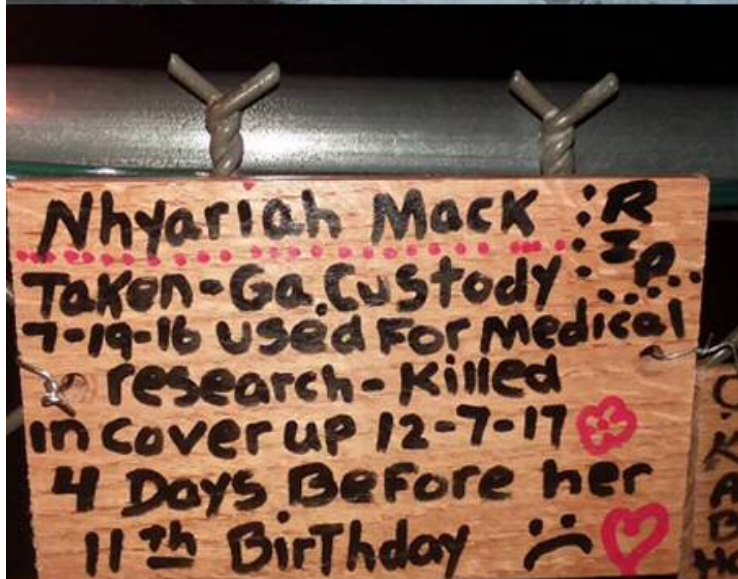 Nhyariah Mack : R
I
P...
Taken-Ga. Custody
7-19-16 used For Medical
research - Killed
in cover up 12-7-17
4 Days Before her
11th BirThday